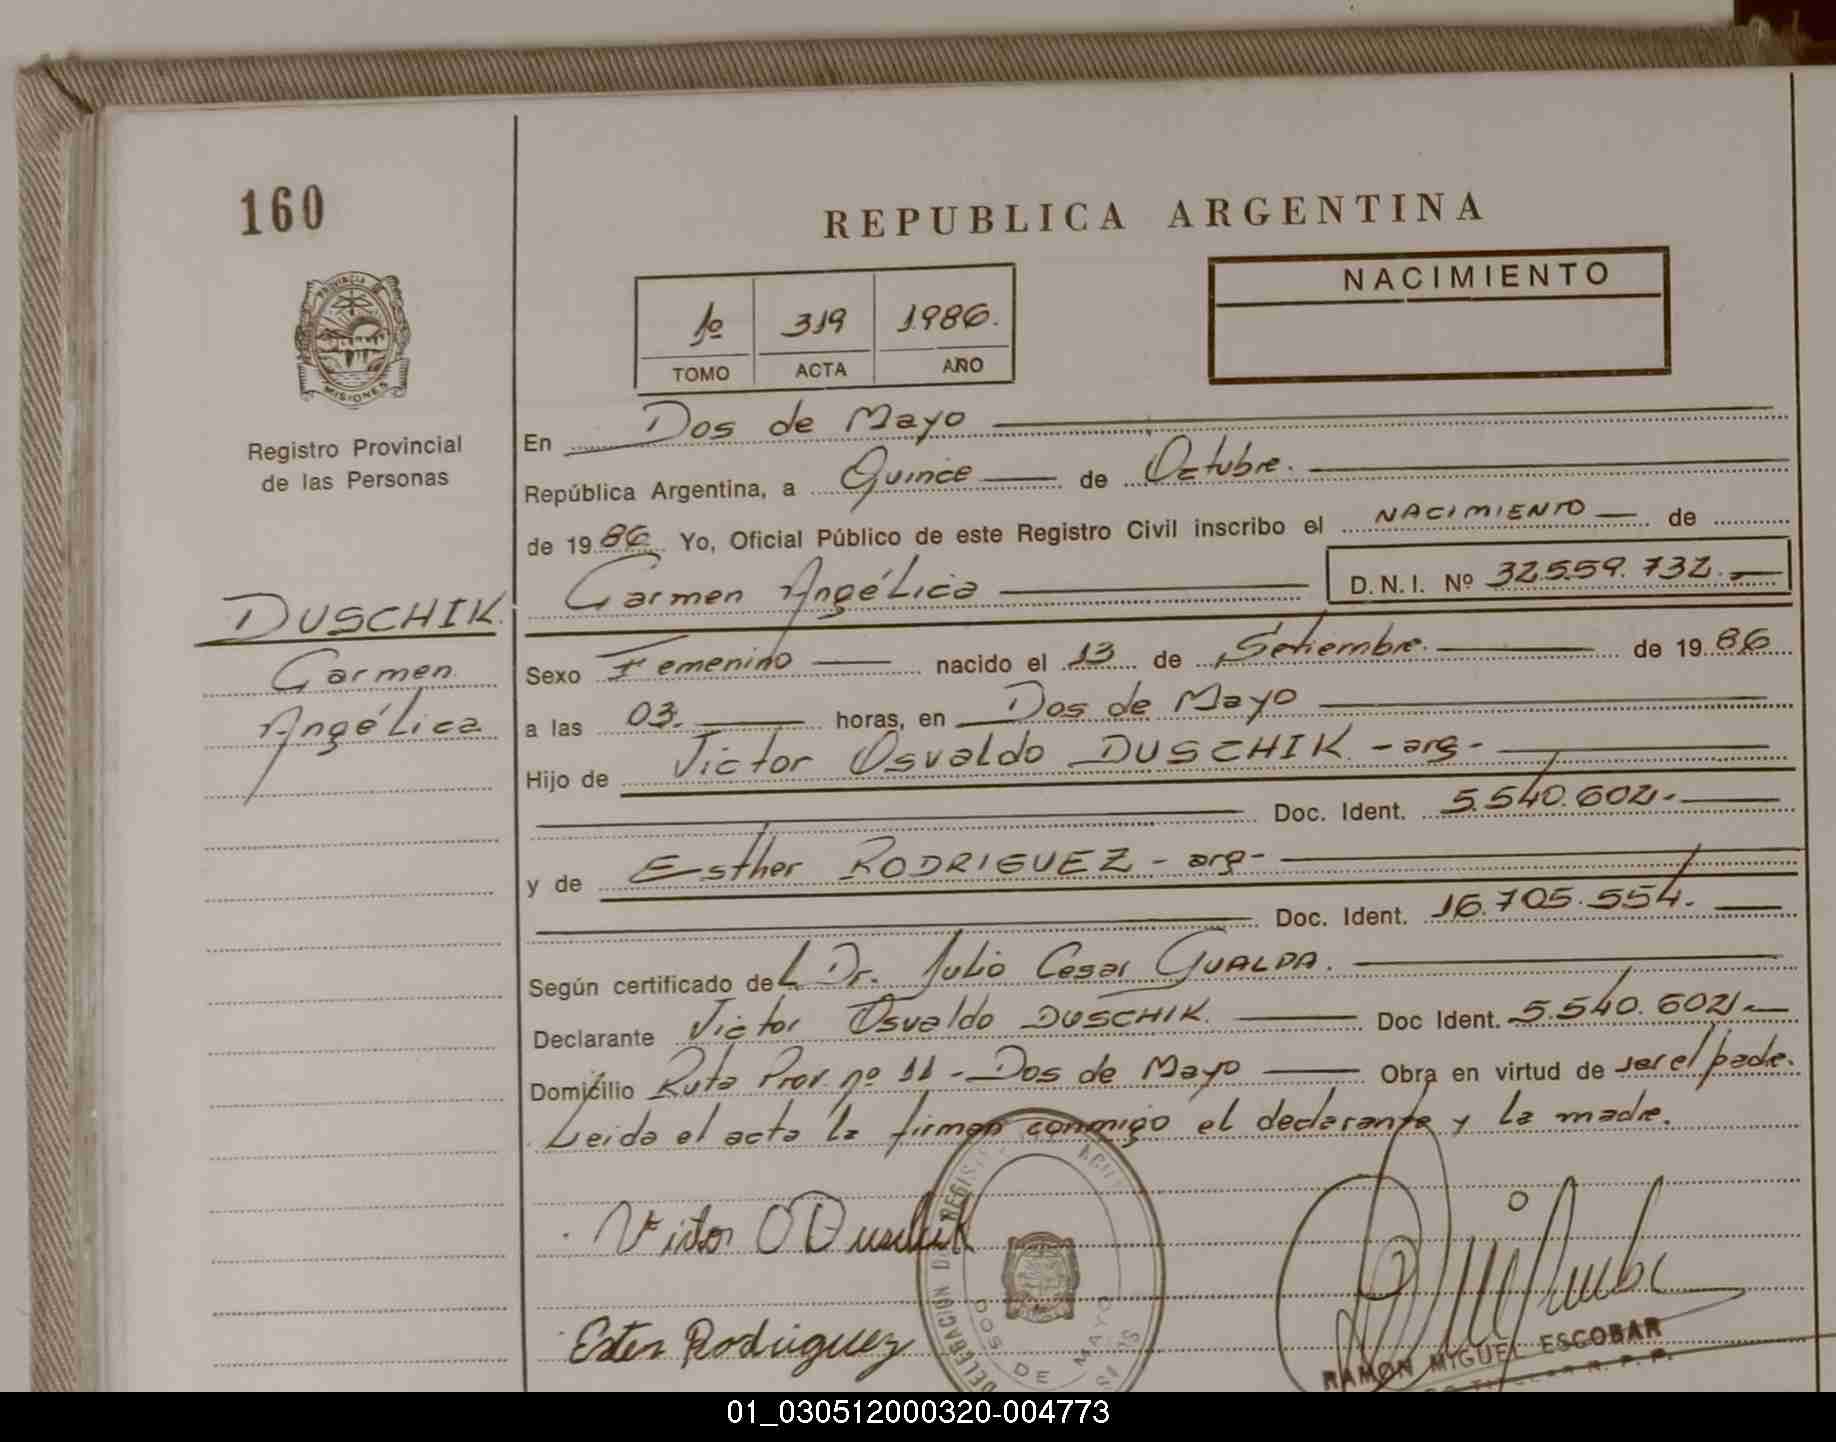 160
REPUBLICA ARGENTINA
PROVINCIA DE
MISIONES
Registro Provincial
de las Personas
1º 319 1986.
TOMO ACTA AÑO
NACIMIENTO
En Dos de Mayo
República Argentina, a Quince de Octubre.
de 1986 Yo, Oficial Público de este Registro Civil inscribo el NACIMIENTO de
Carmen Angélica D.N.I. Nº 32.559.732.
DUSCHIK.
Carmen
Angélica
Sexo Femenino nacido el 13 de Setiembre. de 1986
a las 03. horas, en Dos de Mayo
Hijo de Victor Osvaldo DUSCHIK. - arg -
Doc. Ident. 5.540.602.-
y de Esther RODRIGUEZ - arg -
Doc. Ident. 16.705.554.
Según certificado del Dr. Julio Cesar GUALDA.
Declarante Victor Osvaldo DUSCHIK. Doc Ident. 5.540.602.-
Domicilio Ruta Prov. nº 11 - Dos de Mayo Obra en virtud de ser el padre.
Leida el acta la firman conmigo el declarante y la madre.
Victor O Duschik
Ester Rodriguez
DELEGACION
DOS DE MAYO
RAMON MIGUEL ESCOBAR
01_030512000320-004773